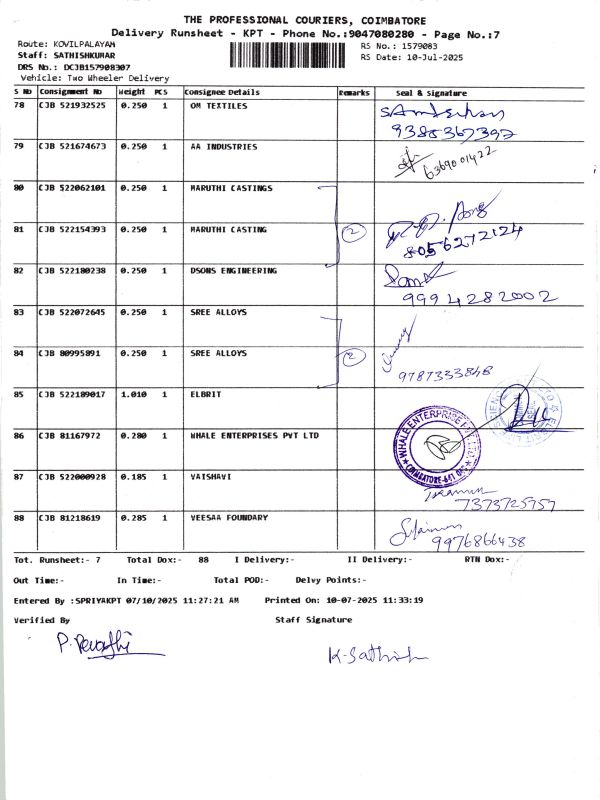 THE PROFESSIONAL COURIERS, COIMBATORE
Delivery Runsheet - KPT - Phone No.:9047080280 - Page No.:7
Route: KOVILPALAYAM
RS No.: 1579083
Staff: SATHISHKUMAR
RS Date: 10-Jul-2025
DRS No.: DCJB157908307
Vehicle: Two Wheeler Delivery
S NO Consignment No Weight PCS Consignee Details Remarks Seal & Signature
78 CJB 521932525 0.250 1 OM TEXTILES
9385367392
79 CJB 521674673 0.250 1 AA INDUSTRIES
6369001422
80 CJB 522062101 0.250 1 MARUTHI CASTINGS
81 CJB 522154393 0.250 1 MARUTHI CASTING 2
8056272124
82 CJB 522180238 0.250 1 DSONS ENGINEERING
9994282002
83 CJB 522072645 0.250 1 SREE ALLOYS
84 CJB 80995891 0.250 1 SREE ALLOYS 2
9787333848
85 CJB 522189017 1.010 1 ELBRIT
86 CJB 81167972 0.280 1 WHALE ENTERPRISES PVT LTD
WHALE ENTERPRISE PVT LTD
COIMBATORE-641
87 CJB 522000928 0.185 1 VAISHAVI
7373725757
88 CJB 81218619 0.285 1 VEESAA FOUNDARY
9976866438
Tot. Runsheet:- 7 Total Dox:- 88 I Delivery:- II Delivery:- RTN Dox:-
Out Time:- In Time:- Total POD:- Delvy Points:-
Entered By :SPRIYAKPT 07/10/2025 11:27:21 AM Printed On: 10-07-2025 11:33:19
Verified By Staff Signature
P. Revathi
K-Sathish